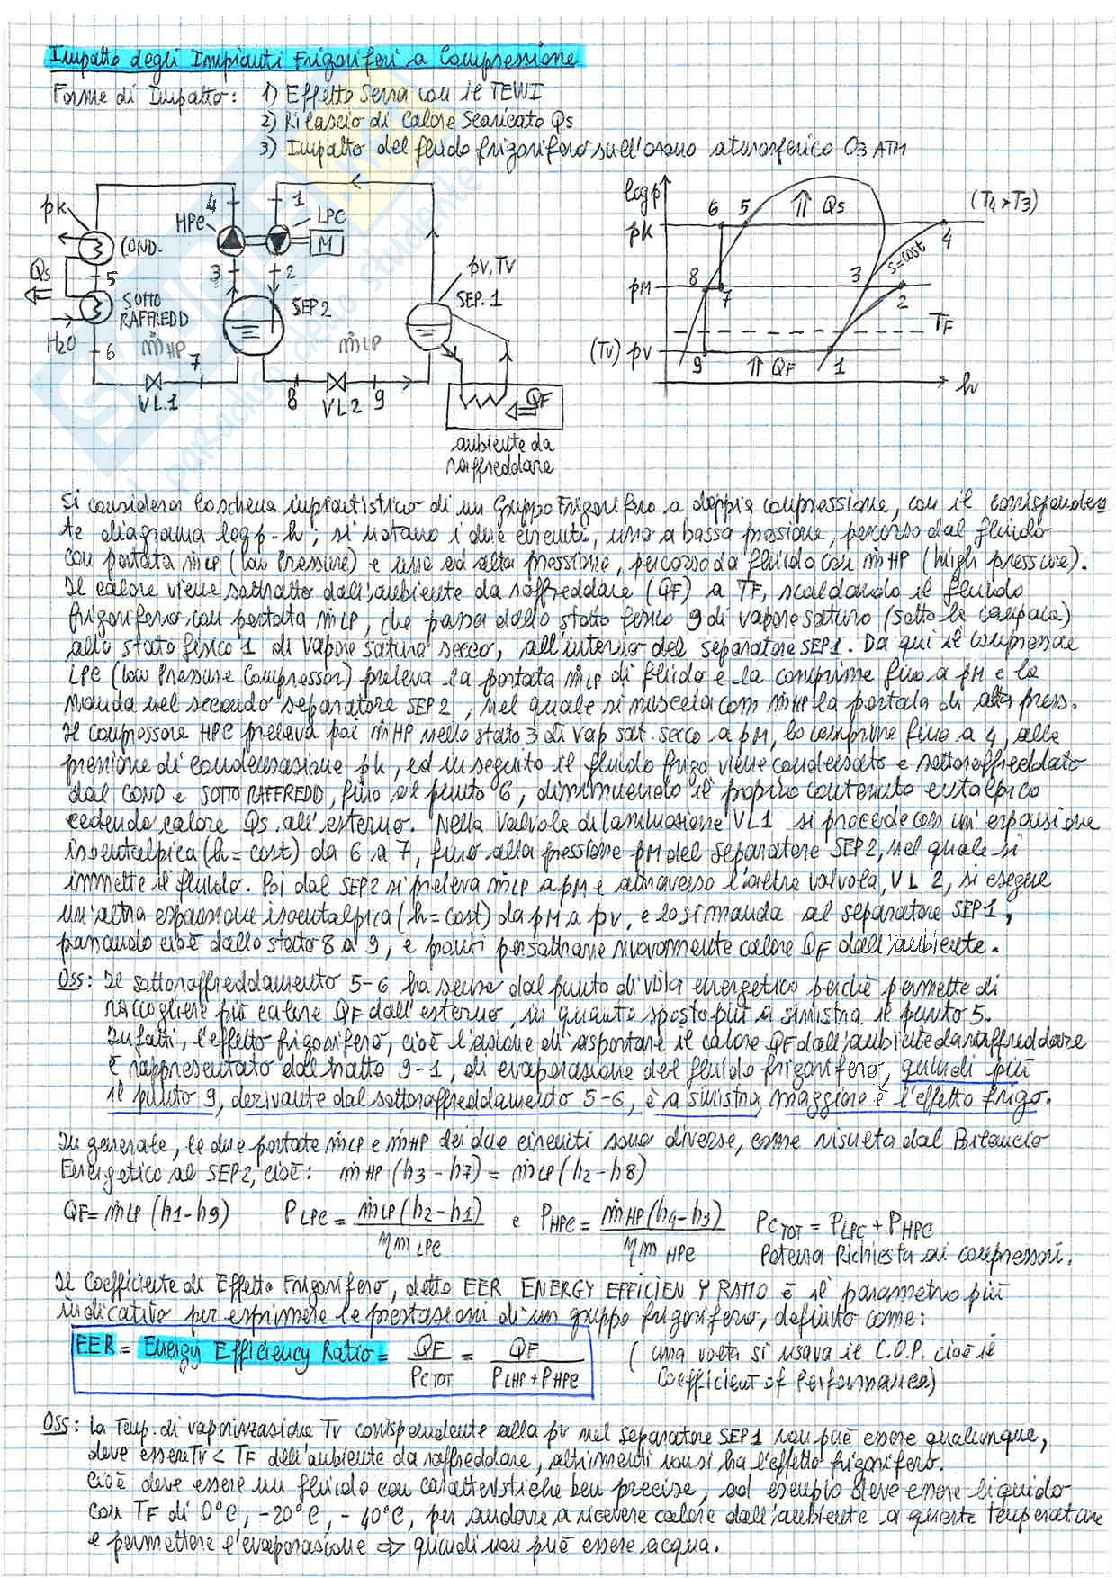 Impatto degli Impianti Frigoriferi a Compressione
Forme di Impatto: 1) Effetto Serra con il TEWI
2) Rilascio di Calore Scaricato Qs
3) Impatto del fluido frigorifero sull'ozono atmosferico O3 ATM
pk
COND.
Qs
5
SOTTO
RAFFREDD
H2O
6
ṁHP
7
VL.1
4
HPC
3
1
LPC
M
2
SEP2
ṁLP
8
VL2
9
pv, Tv
SEP.1
QF
ambiente da
raffreddare
log p
pk
pM
(Tv) pv
6
5
Qs
(T4 > T3)
4
s=cost
3
2
8
7
TF
9
QF
1
h
Si considera lo schema impiantistico di un Gruppo Frigorifero a doppia compressione, con il corrisponden
te diagramma log p-h; si notano i due circuiti, uno a bassa pressione, percorso dal fluido
con portata ṁLP (low Pressure) e uno ad alta pressione, percorso da fluido con ṁHP (high pressure).
Il calore viene sottratto dall'ambiente da raffreddare (QF) a TF, scaldando il fluido
frigorifero con portata ṁLP, che passa dallo stato fisico 9 di vapore saturo (sotto la campana)
allo stato fisico 1 di vapore saturo secco, all'interno del separatore SEP1. Da qui il compressore
LPC (Low Pressure Compressor) preleva la portata ṁLP di fluido e la comprime fino a pM e la
manda nel secondo separatore SEP2, nel quale si miscela con ṁHP la portata di alta press.
Il compressore HPC preleva poi ṁHP nello stato 3 di vap sat. secco a pM, lo comprime fino a 4, alla
pressione di condensazione pk, ed in seguito il fluido frigo viene condensato e sottoraffreddato
dal COND e SOTTORAFFREDD, fino al punto 6, diminuendo il proprio contenuto entalpico
cedendo calore Qs all'esterno. Nella valvola di laminazione VL1 si procede con un'espansione
isoentalpica (h=cost) da 6 a 7, fino alla pressione pM del separatore SEP2, nel quale si
immette il fluido. Poi dal SEP2 si preleva ṁLP a pM e attraverso l'altra valvola, VL 2, si esegue
un'altra espansione isoentalpica (h=cost) da pM a pv, e lo si manda al separatore SEP1,
passando cioè dallo stato 8 a 9, e pronti per sottrarre nuovamente calore QF dall'ambiente.
Oss: Il sottoraffreddamento 5-6 ha senso dal punto di vista energetico perchè permette di
raccogliere più calore QF dall'esterno, in quanto sposto più a sinistra il punto 5.
Infatti, l'effetto frigorifero, cioè l'azione di asportare il calore QF dall'ambiente da raffreddare
è rappresentato dal tratto 9-1, di evaporazione del fluido frigorifero, quindi più
il punto 9, derivante dal sottoraffreddamento 5-6, è a sinistra, maggiore è l'effetto frigo.
In generale, le due portate ṁLP e ṁHP dei due circuiti sono diverse, come risulta dal Bilancio
Energetico al SEP2, cioè: ṁHP (h3-h7) = ṁLP (h2-h8)
QF = ṁLP (h1-h9) PLPC = ṁLP (h2-h1) / ηm LPC e PHPC = ṁHP (h4-h3) / ηm HPC PCTOT = PLPC + PHPC
Potenza Richiesta ai compressori.
Il Coefficiente di Effetto Frigorifero, detto EER ENERGY EFFICIEN Y RATIO è il parametro più
indicativo per esprimere le prestazioni di un gruppo frigorifero, definito come:
EER = Energy Efficiency Ratio = QF / PCTOT = QF / PLHP + PHPC (una volta si usava il C.O.P. cioè il
Coefficient of Performance)
Oss: La Temp. di vaporizzazione Tv corrispondente alla pv nel separatore SEP1 non può essere qualunque,
deve essere Tv < TF dell'ambiente da raffreddare, altrimenti non si ha l'effetto frigorifero.
Cioè deve essere un fluido con caratteristiche ben precise, ad esempio deve essere liquido
con TF di 0°C, -20°C, -40°C, per andare a ricevere calore dall'ambiente a queste temperature
e permettere l'evaporazione => quindi non può essere acqua.